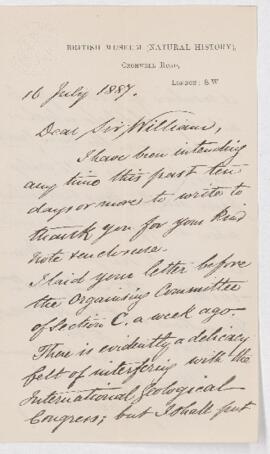 BRITISH MUSEUM (NATURAL HISTORY),
CROMWELL ROAD,
LONDON: S.W
16 July 1887.
Dear Sir William,
I have been intending
any time this past ten
days or more to write to
thank you for your kind
note & enclosure.
I laid your letter before
the Organising Committee
of Section C, a week ago.
There is evidently a delicacy
felt of interfering with the
International Geological
Congress; but I shall put